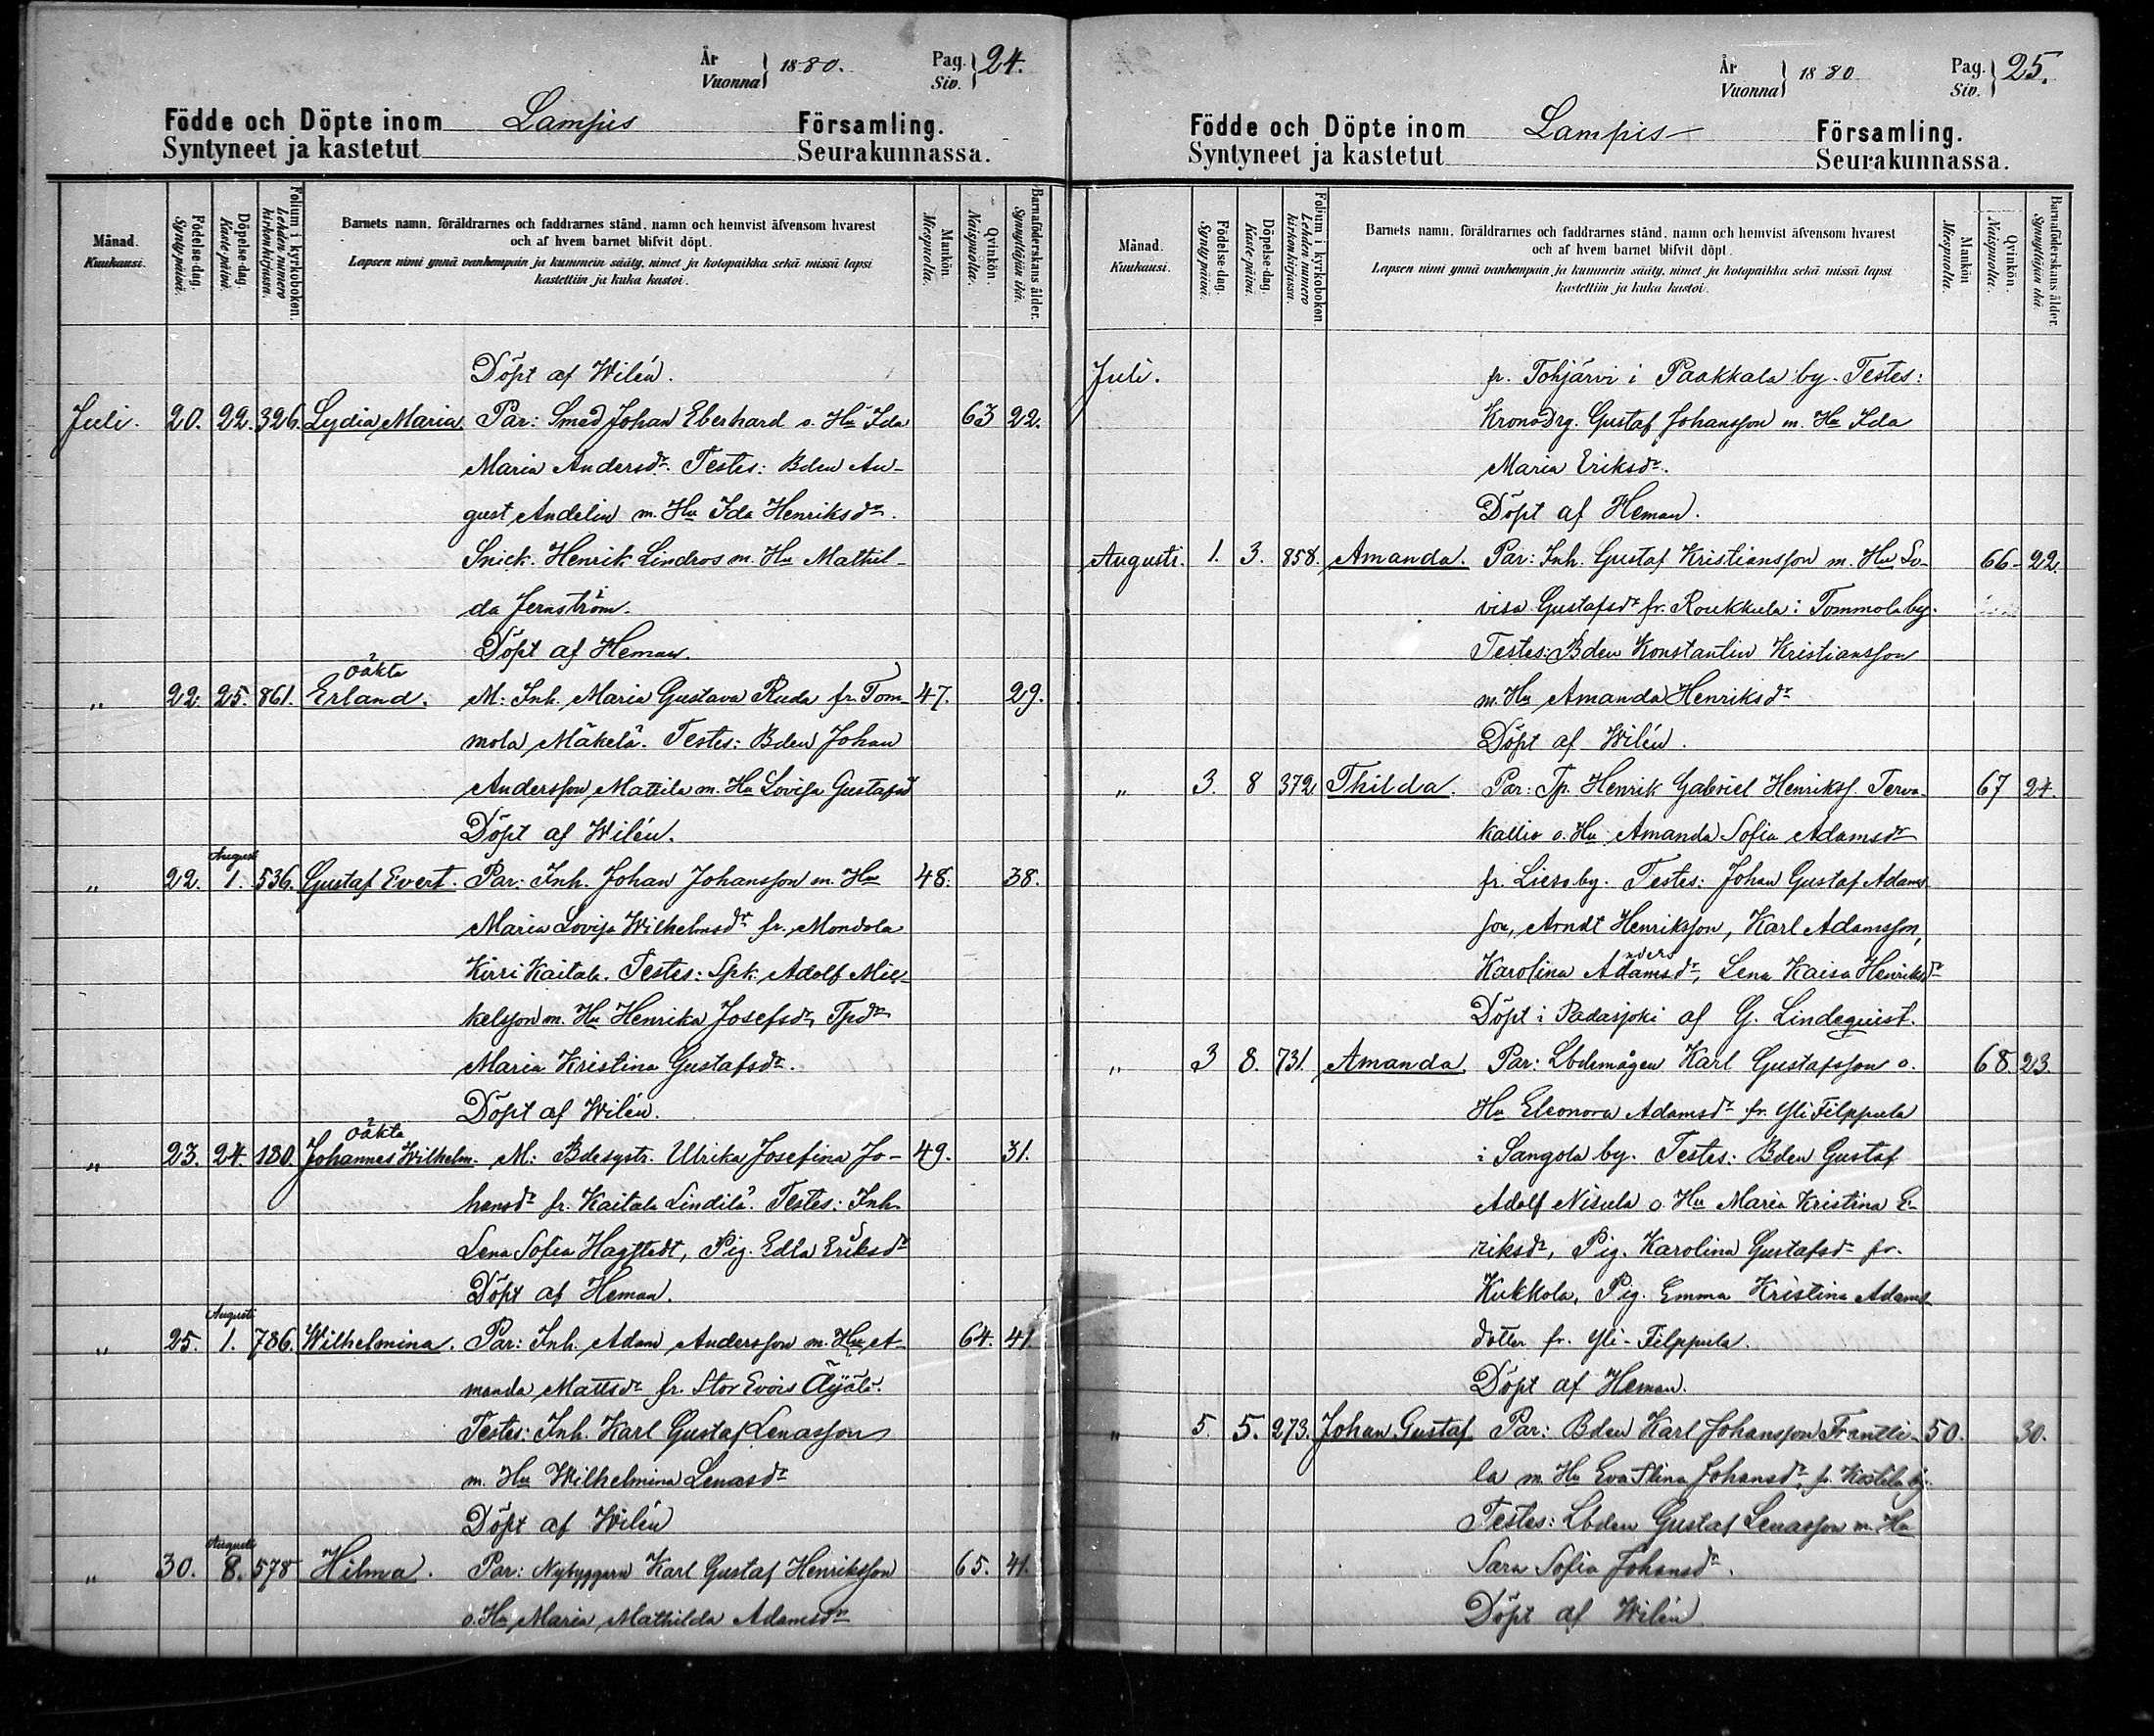 År
Vuonna } 1880. Pag.
Siv. } 24.
Födde och Döpte inom Lampis Församling.
Syntyneet ja kastetut Seurakunnassa.
Månad.
Kuukausi.
Födelse-dag.
Synty-päivä.
Döpelse-dag.
Kaste-päivä.
Folium i kyrkoboken.
Lehden numero
kirkonkirjassa.
Barnets namn, föräldrarnes och faddrarnes stånd, namn och hemvist äfvensom hvarest
och af hvem barnet blifvit döpt.
Lapsen nimi ynnä vanhempain ja kummein sääty, nimet ja kotopaikka sekä missä lapsi
kastettiin ja kuka kastoi.
Mankön.
Miespuolta.
Qvinkön.
Naispuolta.
Barnaföderskans ålder.
Synnyttäjän ikä.
Döpt af Wilén.
Juli. 20. 22. 326. Lydia Maria. Par: Smed Johan Eberhard o. Hu Ida 63 22.
Maria Andersdr. Testes: Bden Au-
gust Andelin m. Hu Ida Henriksdr.
Snick. Henrik Lindros m. Hu Mathil-
da Jernström.
Döpt af Heman.
oäkta
„ 22. 25. 861. Erland. M: Inh. Maria Gustava Ruda fr. Tom- 47. 29.
mola Mäkelä. Testes: Bden Johan
Andersson Mattila m. Hu Lovisa Gustafsd
Döpt af Wilén.
Augusti
„ 22. 1. 536. Gustaf Evert. Par: Inh. Johan Johansson m. Hu 48. 38.
Maria Lovisa Wilhelmsdr fr. Mondola
Kirri Kaitala. Testes: Spk. Adolf Mic-
kelsson m. Hu Henrika Josefsdr, Tpdr
Maria Kristina Gustafsdr.
Döpt af Wilén.
oäkta
„ 23. 24. 180. Johannes Wilhelm. M: Bdesystr. Ulrika Josefina Jo- 49. 31.
hansdr fr. Kaitala Lindilä. Testes: Inh.
Lena Sofia Hagstedt, Pig. Edla Eriksdr
Döpt af Heman.
Augusti
„ 25. 1. 786. Wilhelmina. Par: Inh. Adam Andersson m. Hu A- 64. 41.
manda Mattsdr fr. Stor Evois Äijälä.
Testes: Inh. Karl Gustaf Lenasson
m. Hu Wilhelmina Lenasdr
Döpt af Wilén
Augusti
„ 30. 8. 578 Hilma. Par: Nybyggarn Karl Gustaf Henriksson 65. 41.
o. Hu Maria Mathilda Adamsdr
År
Vuonna } 1880 Pag.
Siv. } 25.
Födde och Döpte inom Lampis Församling.
Syntyneet ja kastetut Seurakunnassa.
Månad.
Kuukausi.
Födelse-dag.
Synty päivä.
Döpelse-dag.
Kaste päivä.
Folium i kyrkoboken.
Lehden numero
kirkonkirjassa.
Barnets namn, föräldrarnes och faddrarnes stånd, namn och hemvist äfvensom hvarest
och af hvem barnet blifvit döpt.
Lapsen nimi ynnä vanhempain ja kummein sääty, nimet ja kotopaikka sekä missä lapsi
kastettiin ja kuka kastoi.
Mankön
Miespuolta.
Qvinkön.
Naispuolta.
Barnaföderskans ålder.
Synnyttäjän ikä.
Juli. fr. Tohjärvi i Paakkala by. Testes:
Kronodrg. Gustaf Johansson m. Hu Ida
Maria Eriksdr.
Döpt af Heman.
Augusti. 1. 3. 858. Amanda. Par: Inh. Gustaf Kristiansson m. Hu Lo- 66 22.
visa Gustafsdr fr. Roukkula i Tommola by.
Testes: Bden Konstantin Kristiansson
m. Hu Amanda Henriksdr
Döpt af Wilén.
„ 3. 8 372. Thilda. Par: Tp. Henrik Gabriel Henrikss. Terva- 67 24.
kallio o. Hu Amanda Sofia Adamsdr
fr. Lieso by. Testes: Johan Gustaf Adams-
son, Arndt Henriksson, Karl Adamsson,
nders
Karolina Adamsdr, Lena Kaisa Henriksdr
Döpt i Padasjoki af G. Lindeqvist.
„ 3 8. 731. Amanda. Par: Lbdemågen Karl Gustafsson o. 68. 23.
Hu Eleonora Adamsdr fr. Yli Filppula
i Sangola by. Testes: Bden Gustaf
Adolf Nisula o. Hu Maria Kristina E-
riksdr, Pig. Karolina Gustafsdr fr.
Kukkola, Pig. Emma Kristina Adams-
dotter fr. Yli-Filppula.
Döpt af Heman.
„ 5. 5. 273. Johan Gustaf Par: Bden Karl Johansson Frantti- 50. 30.
la m. Hu Eva Stina Johansdr, fr. Kostila by.
Testes: Lbden Gustaf Lenasson m. Hu
Sara Sofia Johansdr.
Döpt af Wilén